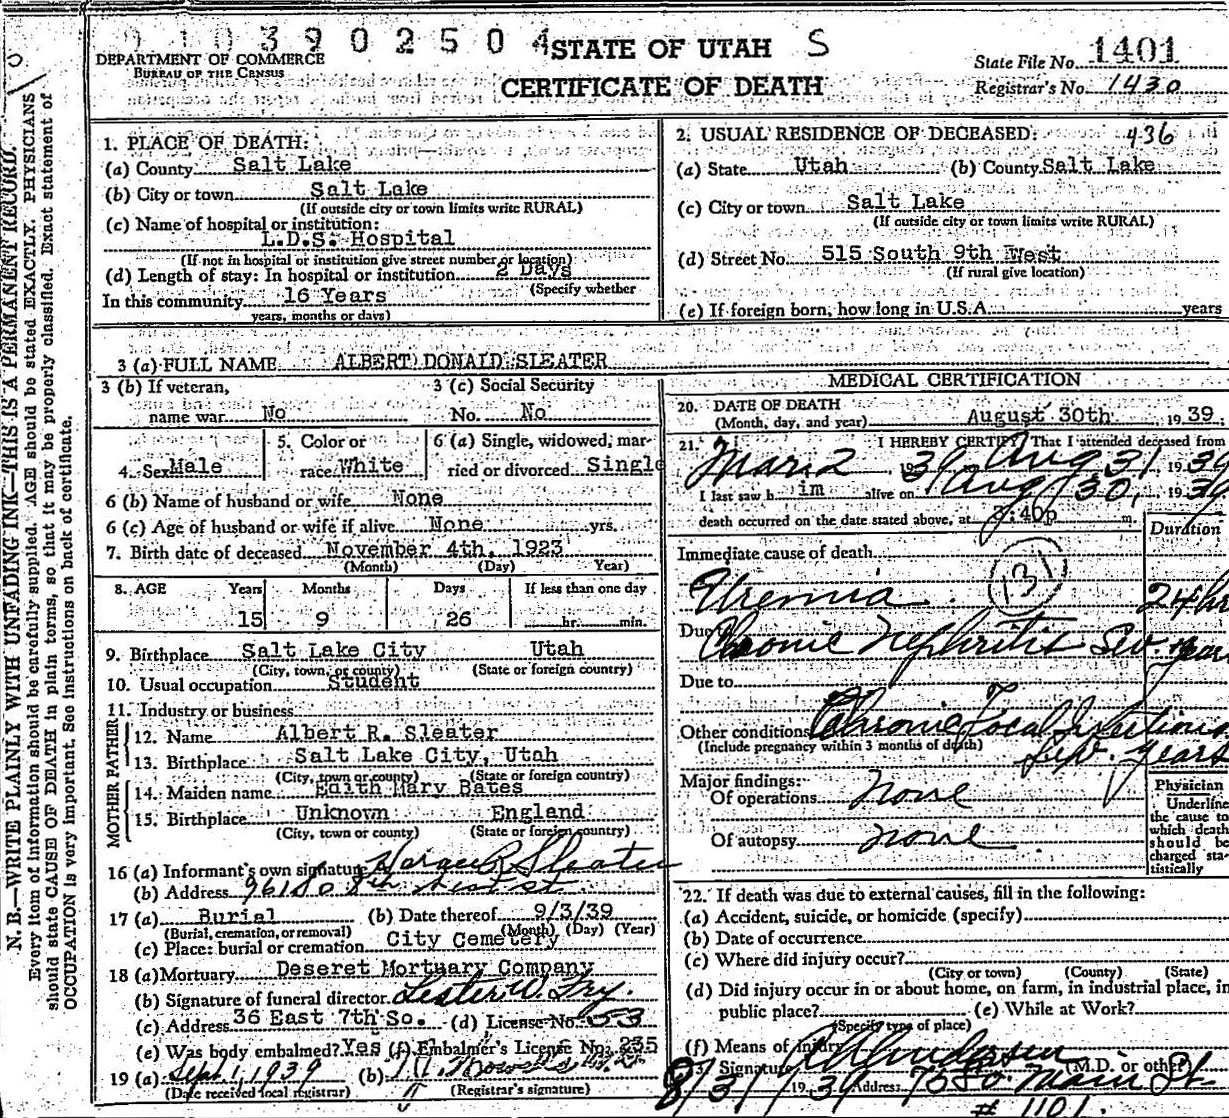 9 1 0 3 9 0 2 5 0 4
DEPARTMENT OF COMMERCE
BUREAU OF THE CENSUS
STATE OF UTAH S
CERTIFICATE OF DEATH
State File No. 1401
Registrar's No. 1430
N. B.—WRITE PLAINLY WITH UNFADING INK—THIS IS A PERMANENT RECORD.
Every item of information should be carefully supplied. AGE should be stated EXACTLY. PHYSICIANS
should state CAUSE OF DEATH in plain terms, so that it may be properly classified. Exact statement of
OCCUPATION is very important. See instructions on back of certificate.
1. PLACE OF DEATH:
(a) County Salt Lake
(b) City or town Salt Lake
(If outside city or town limits write RURAL)
(c) Name of hospital or institution:
L.D.S. Hospital
(If not in hospital or institution give street number or location)
(d) Length of stay: In hospital or institution 2 Days
(Specify whether
In this community 16 Years
years, months or days)
2. USUAL RESIDENCE OF DECEASED: 436
(a) State Utah (b) County Salt Lake
(c) City or town Salt Lake
(If outside city or town limits write RURAL)
(d) Street No. 515 South 9th West
(If rural give location)
(e) If foreign born, how long in U.S.A. years
3 (a) FULL NAME ALBERT DONALD SLEATER
3 (b) If veteran,
name war No
3 (c) Social Security
No. No
4. Sex Male
5. Color or
race White
6 (a) Single, widowed, mar-
ried or divorced Single
6 (b) Name of husband or wife None
6 (c) Age of husband or wife if alive None yrs.
7. Birth date of deceased November 4th, 1923
(Month) (Day) Year)
8. AGE Years Months Days If less than one day
15 9 26 hr. min.
9. Birthplace Salt Lake City Utah
(City, town, or county) (State or foreign country)
10. Usual occupation Student
11. Industry or business
FATHER
12. Name Albert R. Sleater
13. Birthplace Salt Lake City, Utah
(City, town or county) (State or foreign country)
MOTHER
14. Maiden name Edith Mary Bates
15. Birthplace Unknown England
(City, town or county) (State or foreign country)
16 (a) Informant's own signature Horace R Sleater
(b) Address 961 So 8th West St
17 (a) Burial (b) Date thereof 9/3/39
(Burial, cremation, or removal) (Month) (Day) (Year)
(c) Place: burial or cremation City Cemetery
18 (a) Mortuary Deseret Mortuary Company
(b) Signature of funeral director Lester W. Fry.
(c) Address 36 East 7th So. (d) License No. 53
(e) Was body embalmed? Yes (f) Embalmer's License No. 235
19 (a) Sept 1, 1939 (b)
(Date received local registrar) (Registrar's signature)
MEDICAL CERTIFICATION
20. DATE OF DEATH
(Month, day, and year) August 30th 1939
21. I HEREBY CERTIFY That I attended deceased from
Mar 2 1939 to Aug 31 1939
I last saw h im alive on Aug 30, 1939
death occurred on the date stated above, at 8:40p m.
Duration
Immediate cause of death
131
Uremia 24 hr
Due to Chronic Nephritis Sev. years
Due to
Other conditions Chronic Focal Infections
(Include pregnancy within 3 months of death)
Sev. years
Major findings:
Of operations none
Of autopsy none
Physician
Underline
the cause to
which death
should be
charged sta-
tistically
22. If death was due to external causes, fill in the following:
(a) Accident, suicide, or homicide (specify)
(b) Date of occurrence
(c) Where did injury occur?
(City or town) (County) (State)
(d) Did injury occur in or about home, on farm, in industrial place, in
public place? (e) While at Work?
(Specify type of place)
(f) Means of injury
Signature Anderson (M.D. or other)
8/31 1939 Address 75 So. Main St
# 1101